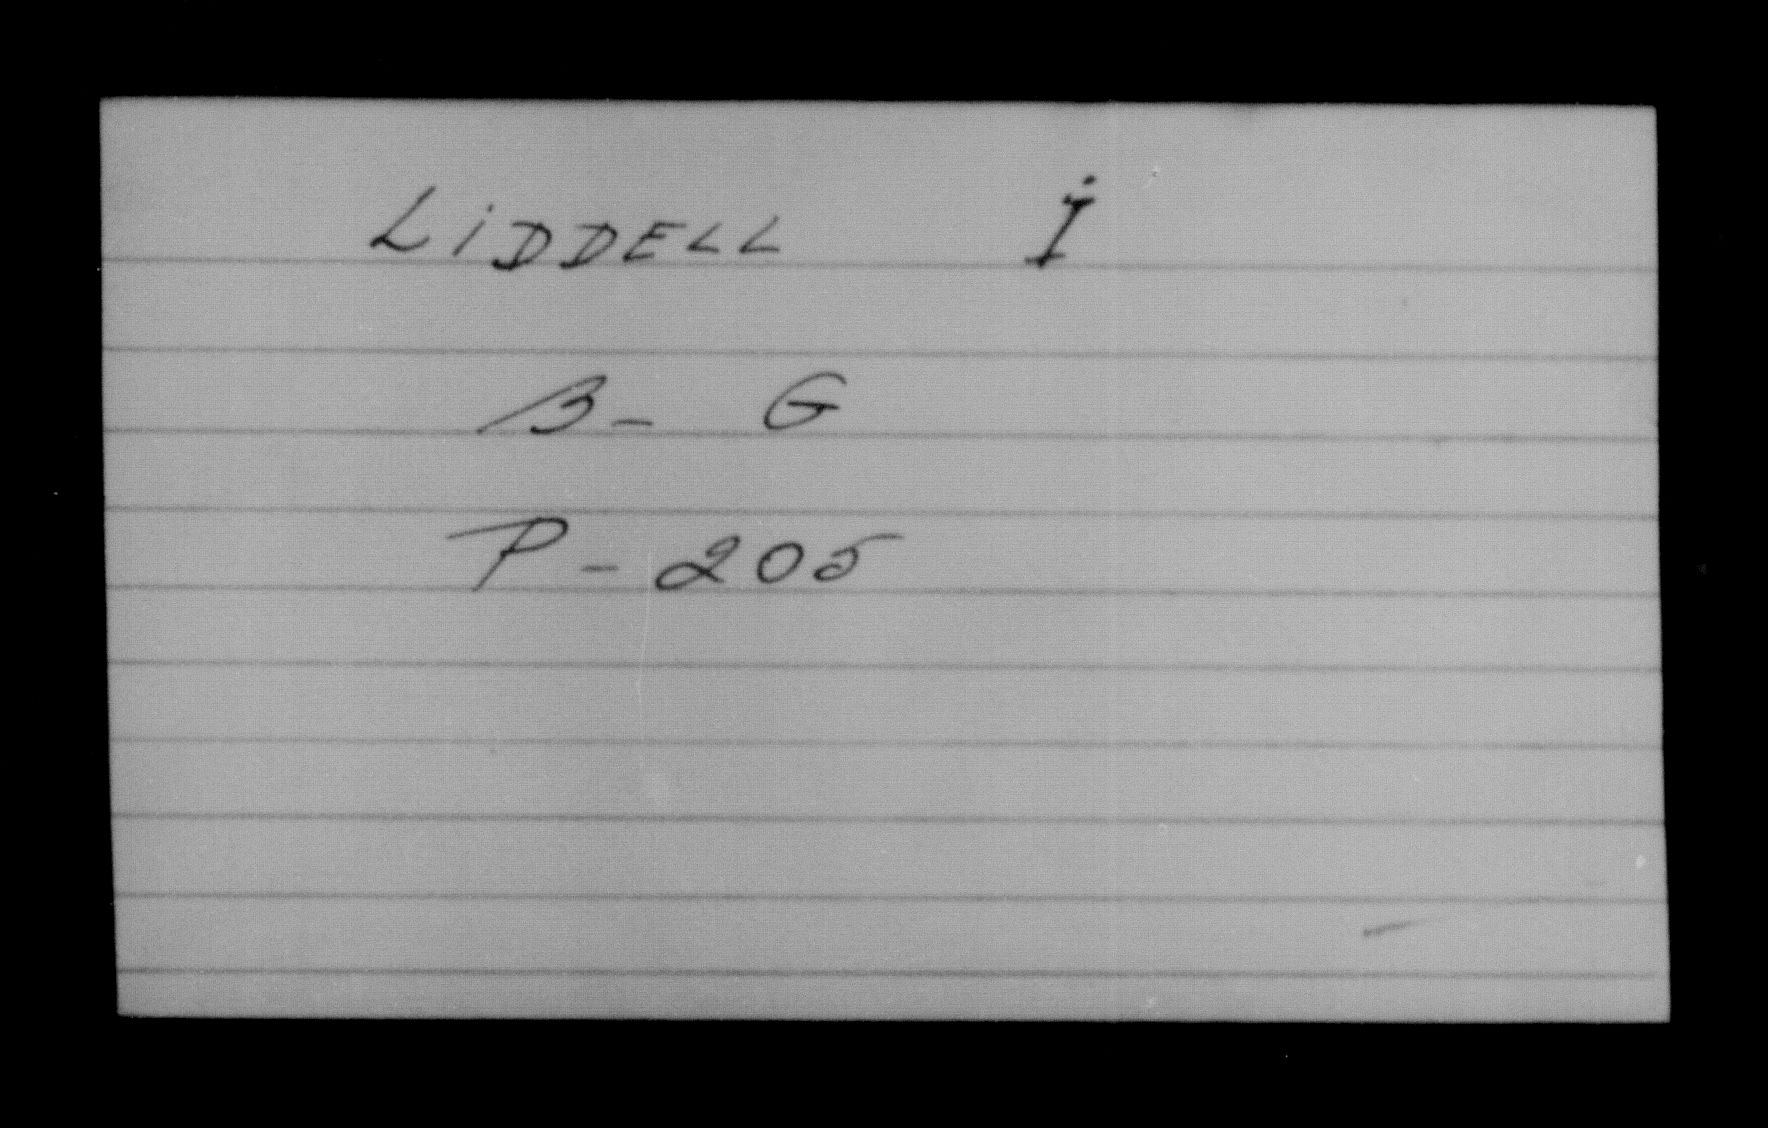 LiDDELL I
B- G
P-205